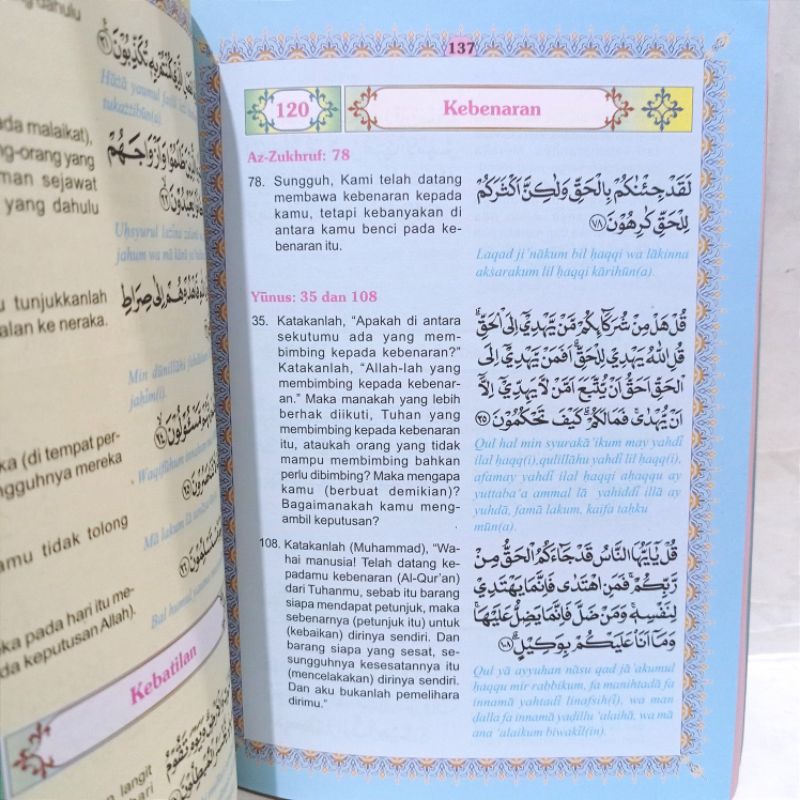 dahulu
تُكَذِّبُونَ
Hāżā yaumul faṣl
tukażżibūn(a)
ada malaikat),
ng-orang yang
man sejawat
yang dahulu
ظَلَمُوْا وَاَزْوَاجَهُمْ
Uḥsyurul lażīna
jahum wa mā kānū
u tunjukkanlah
alan ke neraka.
فَاهْدُوْهُمْ اِلٰى صِرَاطِ
Min dūnillāhi
jaḥīm(i)
ka (di tempat per-
ngguhnya mereka
Waqifūhum
amu tidak tolong
Mā lakum lā
Bal humul
ka pada hari itu me-
da keputusan Allah).
Kebatilan
langit
hari
137
120
Kebenaran
Az-Zukhruf: 78
78. Sungguh, Kami telah datang
membawa kebenaran kepada
kamu, tetapi kebanyakan di
antara kamu benci pada ke-
benaran itu.
لَقَدْ جِئْنٰكُمْ بِالْحَقِّ وَلٰكِنَّ اَكْثَرَكُمْ
لِلْحَقِّ كٰرِهُوْنَ ٧٨
Laqad ji'nākum bil ḥaqqi wa lākinna
akṡarakum lil ḥaqqi kārihūn(a).
Yūnus: 35 dan 108
35. Katakanlah, “Apakah di antara
sekutumu ada yang mem-
bimbing kepada kebenaran?”
Katakanlah, “Allah-lah yang
membimbing kepada kebenar-
an.” Maka manakah yang lebih
berhak diikuti, Tuhan yang
membimbing kepada kebenaran
itu, ataukah orang yang tidak
mampu membimbing bahkan
perlu dibimbing? Maka mengapa
kamu (berbuat demikian)?
Bagaimanakah kamu meng-
ambil keputusan?
قُلْ هَلْ مِنْ شُرَكَاۤىِٕكُمْ مَّنْ يَّهْدِيْٓ اِلَى الْحَقِّۗ
قُلِ اللّٰهُ يَهْدِيْ لِلْحَقِّۗ اَفَمَنْ يَّهْدِيْٓ اِلَى
الْحَقِّ اَحَقُّ اَنْ يُّتَّبَعَ اَمَّنْ لَّا يَهِدِّيْٓ اِلَّآ
اَنْ يُّهْدٰىۚ فَمَا لَكُمْۗ كَيْفَ تَحْكُمُوْنَ ٣٥
Qul hal min syurakā'ikum may yahdī
ilal ḥaqq(i),qulillāhu yahdī lil ḥaqq(i),
afamay yahdī ilal ḥaqqi aḥaqqu ay
yuttaba'a ammal lā yahiddī illā ay
yuhdā, famā lakum, kaifa taḥku
mūn(a).
108. Katakanlah (Muhammad), “Wa-
hai manusia! Telah datang ke-
padamu kebenaran (Al-Qur'an)
dari Tuhanmu, sebab itu barang
siapa mendapat petunjuk, maka
sebenarnya (petunjuk itu) untuk
(kebaikan) dirinya sendiri. Dan
barang siapa yang sesat, se-
sungguhnya kesesatannya itu
(mencelakakan) dirinya sendiri.
Dan aku bukanlah pemelihara
dirimu.”
قُلْ يٰٓاَيُّهَا النَّاسُ قَدْ جَاۤءَكُمُ الْحَقُّ مِنْ
رَّبِّكُمْۚ فَمَنِ اهْتَدٰى فَاِنَّمَا يَهْتَدِيْ
لِنَفْسِهٖۚ وَمَنْ ضَلَّ فَاِنَّمَا يَضِلُّ عَلَيْهَاۚ
وَمَآ اَنَا۠ عَلَيْكُمْ بِوَكِيْلٍۗ ١٠٨
Qul yā ayyuhan nāsu qad jā'akumul
ḥaqqu mir rabbikum, fa manihtadā fa
innamā yahtadī linafsih(ī), wa man
ḍalla fa innamā yaḍillu 'alaihā, wa mā
ana 'alaikum biwakīl(in).